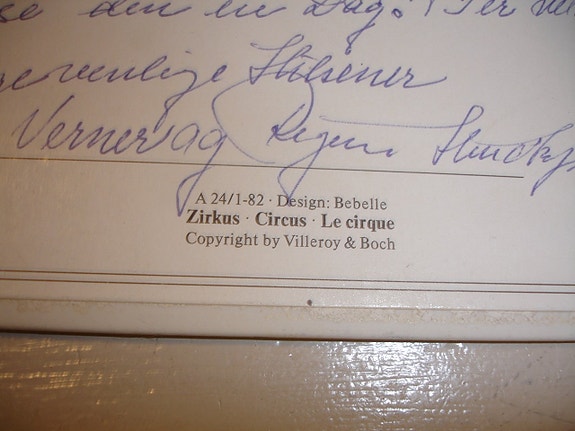 se den en Dag.
Hilsener
Verner og
A 24/1-82 · Design: Bebelle
Zirkus · Circus · Le cirque
Copyright by Villeroy & Boch